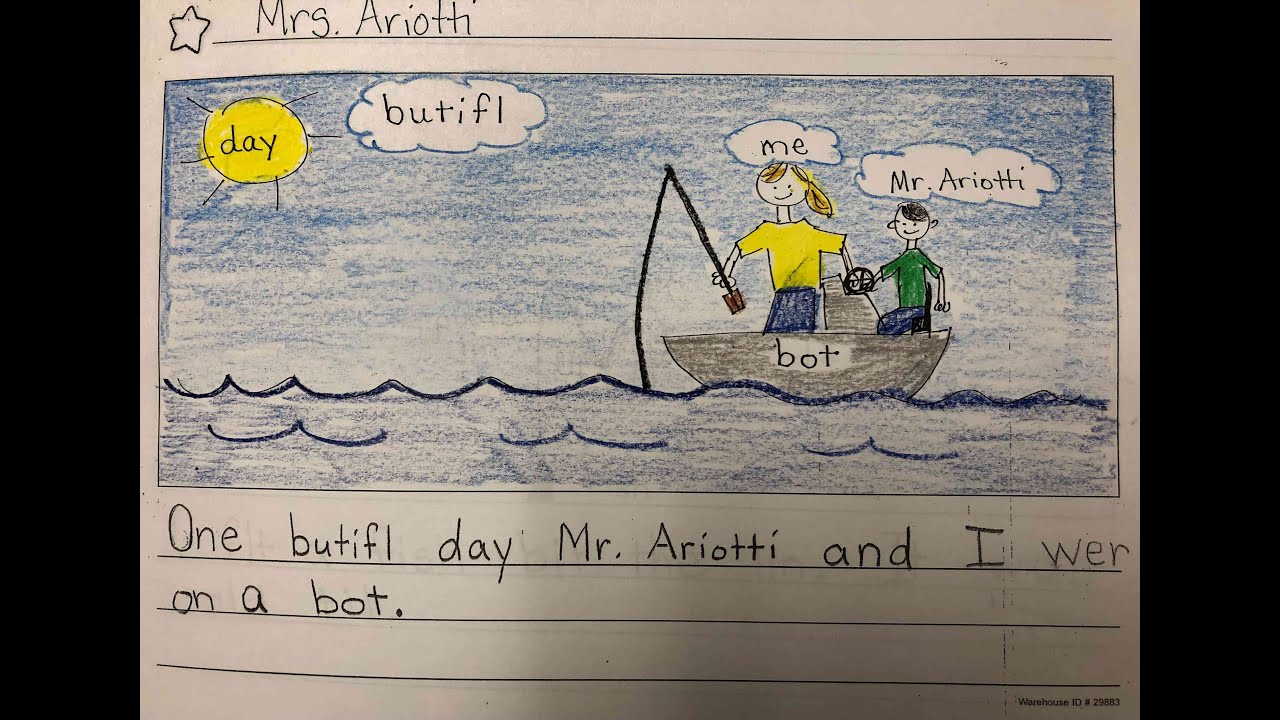 Mrs. Ariotti
day
butifl
me
Mr. Ariotti
bot
One butifl day Mr. Ariotti and I wer
on a bot.
Warehouse ID # 29883